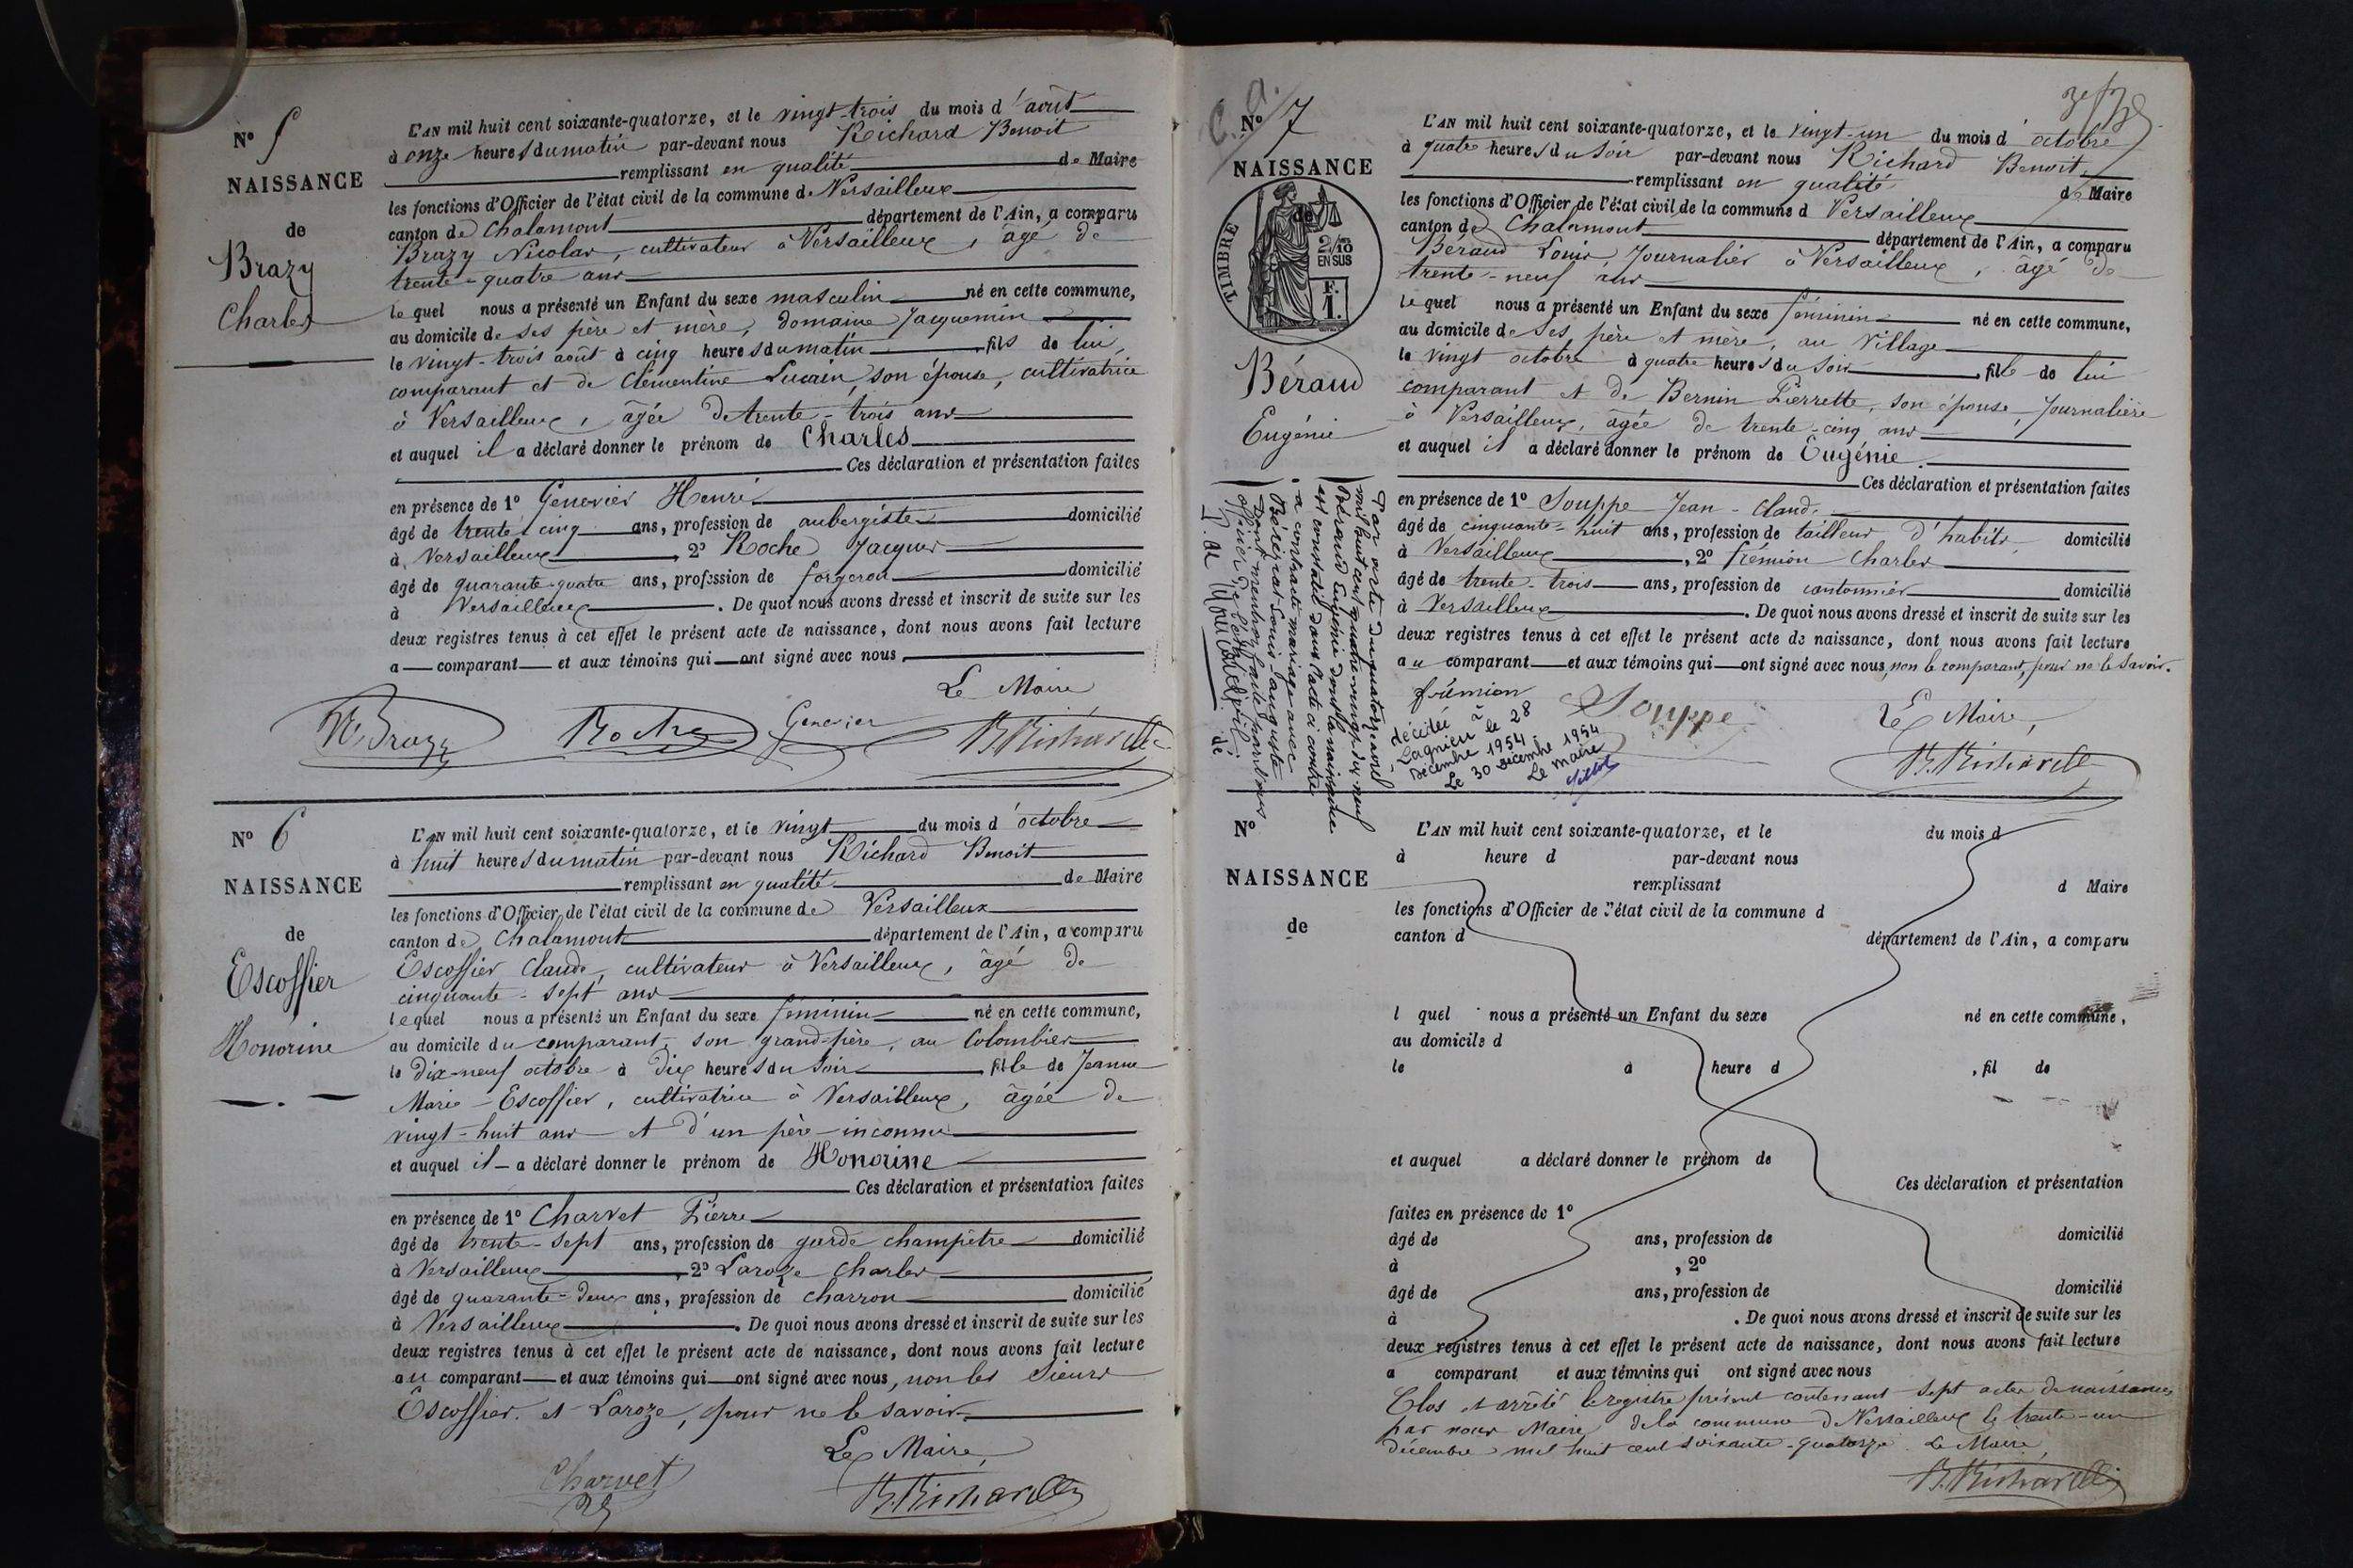 N° 5
NAISSANCE
de
Brazy
Charles
L'AN mil huit cent soixante-quatorze, et le vingt-trois du mois d'août
à onze heures du matin par-devant nous Richard Benoit
remplissant en qualité de Maire
les fonctions d'Officier de l'état civil de la commune de Versailleux
canton de Chalamont département de l'Ain, a comparu
Brazy Nicolas, cultivateur à Versailleux, âgé de
trente-quatre ans
lequel nous a présenté un Enfant du sexe masculin né en cette commune,
au domicile de ses père et mère, domaine Jacquemin
le vingt-trois août à cinq heures du matin, fils de lui,
comparant et de Clémentine Lucain, son épouse, cultivatrice
à Versailleux, âgée de trente-trois ans
et auquel il a déclaré donner le prénom de Charles
Ces déclaration et présentation faites
en présence de 1° Genevier Henri
âgé de trente cinq ans, profession de aubergiste domicilié
à Versailleux, 2° Roche Jacques
âgé de quarante-quatre ans, profession de forgeron domicilié
à Versailleux. De quoi nous avons dressé et inscrit de suite sur les
deux registres tenus à cet effet le présent acte de naissance, dont nous avons fait lecture
a comparant et aux témoins qui ont signé avec nous
Le Maire
N. Brazy Roche Genevier B. Richard
N° 6
NAISSANCE
de
Escoffier
Honorine
L'AN mil huit cent soixante-quatorze, et le vingt du mois d'octobre
à huit heures du matin par-devant nous Richard Benoit
remplissant en qualité de Maire
les fonctions d'Officier de l'état civil de la commune de Versailleux
canton de Chalamont département de l'Ain, a comparu
Escoffier Claude, cultivateur à Versailleux, âgé de
cinquante-sept ans
lequel nous a présenté un Enfant du sexe féminin né en cette commune,
au domicile du comparant, son grand-père, au Colombier
le dix-neuf octobre à dix heures du soir, fille de Jeanne
Marie Escoffier, cultivatrice à Versailleux, âgée de
vingt-huit ans et d'un père inconnu
et auquel il a déclaré donner le prénom de Honorine
Ces déclaration et présentation faites
en présence de 1° Charvet Pierre
âgé de trente-sept ans, profession de garde champêtre domicilié
à Versailleux, 2° Laroze Charles
âgé de quarante-deux ans, profession de charron domicilié
à Versailleux. De quoi nous avons dressé et inscrit de suite sur les
deux registres tenus à cet effet le présent acte de naissance, dont nous avons fait lecture
au comparant et aux témoins qui ont signé avec nous, non les sieurs
Escoffier et Laroze, pour ne le savoir
Le Maire,
Charvet B. Richard
N° 7
NAISSANCE
de
TIMBRE
2/10
EN SUS
F.
1.
Béraud
Eugénie
L'AN mil huit cent soixante-quatorze, et le vingt-un du mois d'octobre
à quatre heures du soir par-devant nous Richard Benoit
remplissant en qualité de Maire
les fonctions d'Officier de l'état civil de la commune d Versailleux
canton de Chalamont département de l'Ain, a comparu
Béraud Louis, Journalier à Versailleux, âgé de
trente-neuf ans
lequel nous a présenté un Enfant du sexe féminin né en cette commune,
au domicile de ses père et mère, au Village
le vingt octobre à quatre heures du soir, fille de lui
comparant et de Bernin Pierrette, son épouse, Journalière
à Versailleux, âgée de trente-cinq ans
et auquel il a déclaré donner le prénom de Eugénie.
Ces déclaration et présentation faites
en présence de 1° Souppe Jean-Claude
âgé de cinquante-huit ans, profession de tailleur d'habits domicilié
à Versailleux, 2° Frémion Charles
âgé de trente-trois ans, profession de cantonnier domicilié
à Versailleux. De quoi nous avons dressé et inscrit de suite sur les
deux registres tenus à cet effet le présent acte de naissance, dont nous avons fait lecture
au comparant et aux témoins qui ont signé avec nous, non le comparant, pour ne le savoir.
frémion Souppe Le Maire,
B. Richard
Par acte du quatorze avril
mil huit cent quatre-vingt-dix-neuf
Béraud Eugénie dont la naissance
est constatée dans l'acte ci contre
a contracté mariage avec
Louis-Auguste
Dont mention faite par nous
officier de l'état civil
décédée à
Lagnieu le 28
décembre 1954.
Le 30 décembre 1954
Le maire
N°
NAISSANCE
de
L'AN mil huit cent soixante-quatorze, et le du mois d
à heure d par-devant nous
remplissant d Maire
les fonctions d'Officier de l'état civil de la commune d
canton d département de l'Ain, a comparu
l quel nous a présenté un Enfant du sexe né en cette commune,
au domicile d
le à heure d , fil de
et auquel a déclaré donner le prénom de
Ces déclaration et présentation
faites en présence de 1°
âgé de ans, profession de domicilié
à , 2°
âgé de ans, profession de domicilié
à . De quoi nous avons dressé et inscrit de suite sur les
deux registres tenus à cet effet le présent acte de naissance, dont nous avons fait lecture
a comparant et aux témoins qui ont signé avec nous
Clos et arrêté le registre présent contenant sept actes de naissances
par nous Maire de la commune de Versailleux le trente-un
décembre mil huit cent soixante-quatorze. Le Maire,
B. Richard